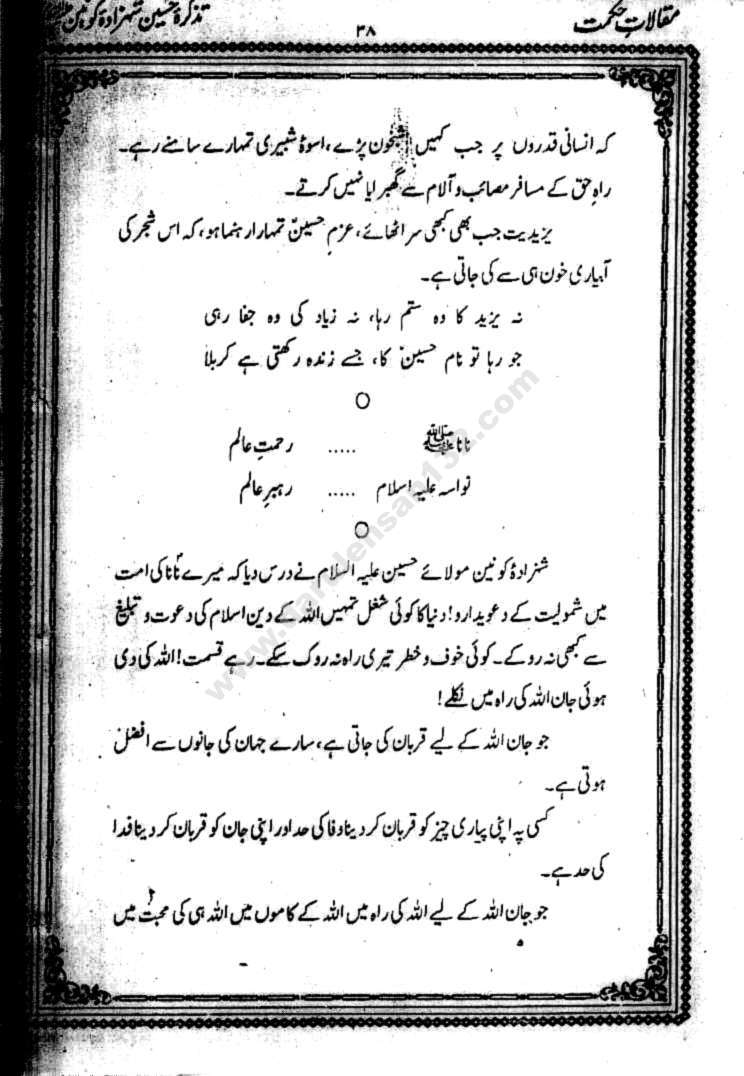 مقالاتِ حکمت
۳۸
تذکرۂ حسین شہزادۂ کونین
کہ انسانی قدروں پر جب کہیں شبخون پڑے، اسوۂ شبیری تمہارے سامنے رہے۔
راہِ حق کے مسافر مصائب و آلام سے گھبرایا نہیں کرتے۔
یزیدیت جب بھی کبھی سر اٹھائے، عزمِ حسینؑ تمہارا رہنما ہو، کہ اس شجر کی
آبیاری خون ہی سے کی جاتی ہے۔
نہ یزید کا وہ ستم رہا، نہ زیاد کی وہ جفا رہی
جو رہا تو نام حسینؑ کا، جسے زندہ رکھتی ہے کربلا
نانا ﷺ ..... رحمتِ عالم
نواسہ علیہ اسلام ..... رہبرِ عالم
شہزادۂ کونین مولائے حسین علیہ السلام نے درس دیا کہ میرے نانا کی امت
میں شمولیت کے دعویدارو! دنیا کا کوئی شغل تمہیں اللہ کے دین اسلام کی دعوت و تبلیغ
سے کبھی نہ روکے۔ کوئی خوف و خطر تیری راہ نہ روک سکے۔ زہے قسمت! اللہ کی دی
ہوئی جان اللہ کی راہ میں نکلے!
جو جان اللہ کے لیے قربان کی جاتی ہے، سارے جہان کی جانوں سے افضل
ہوتی ہے۔
کسی پہ اپنی پیاری چیز کو قربان کر دینا وفا کی حد اور اپنی جان کو قربان کر دینا فدا
کی حد ہے۔
جو جان اللہ کے لیے اللہ کی راہ میں اللہ کے کاموں میں اللہ ہی کی محبت میں